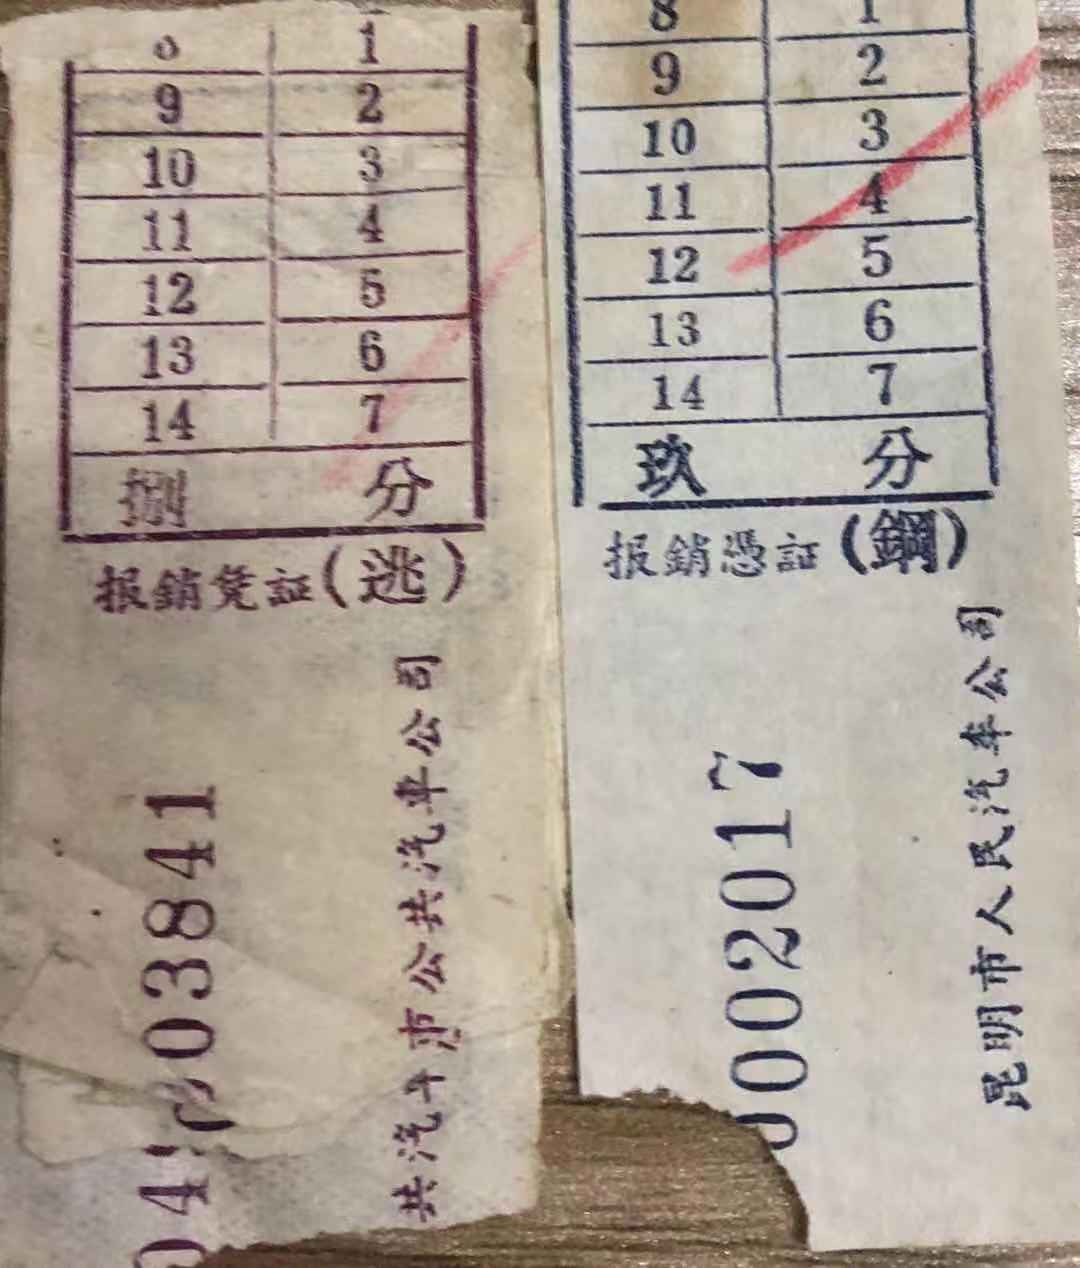 1
9 2
10 3
11 4
12 5
13 6
14 7
捌 分
报銷凭証(逃)
共汽车市公共汽車公司
03841
04
8 1
9 2
10 3
11 4
12 5
13 6
14 7
玖 分
报銷憑証(鋼)
昆明市人民汽车公司
0002017